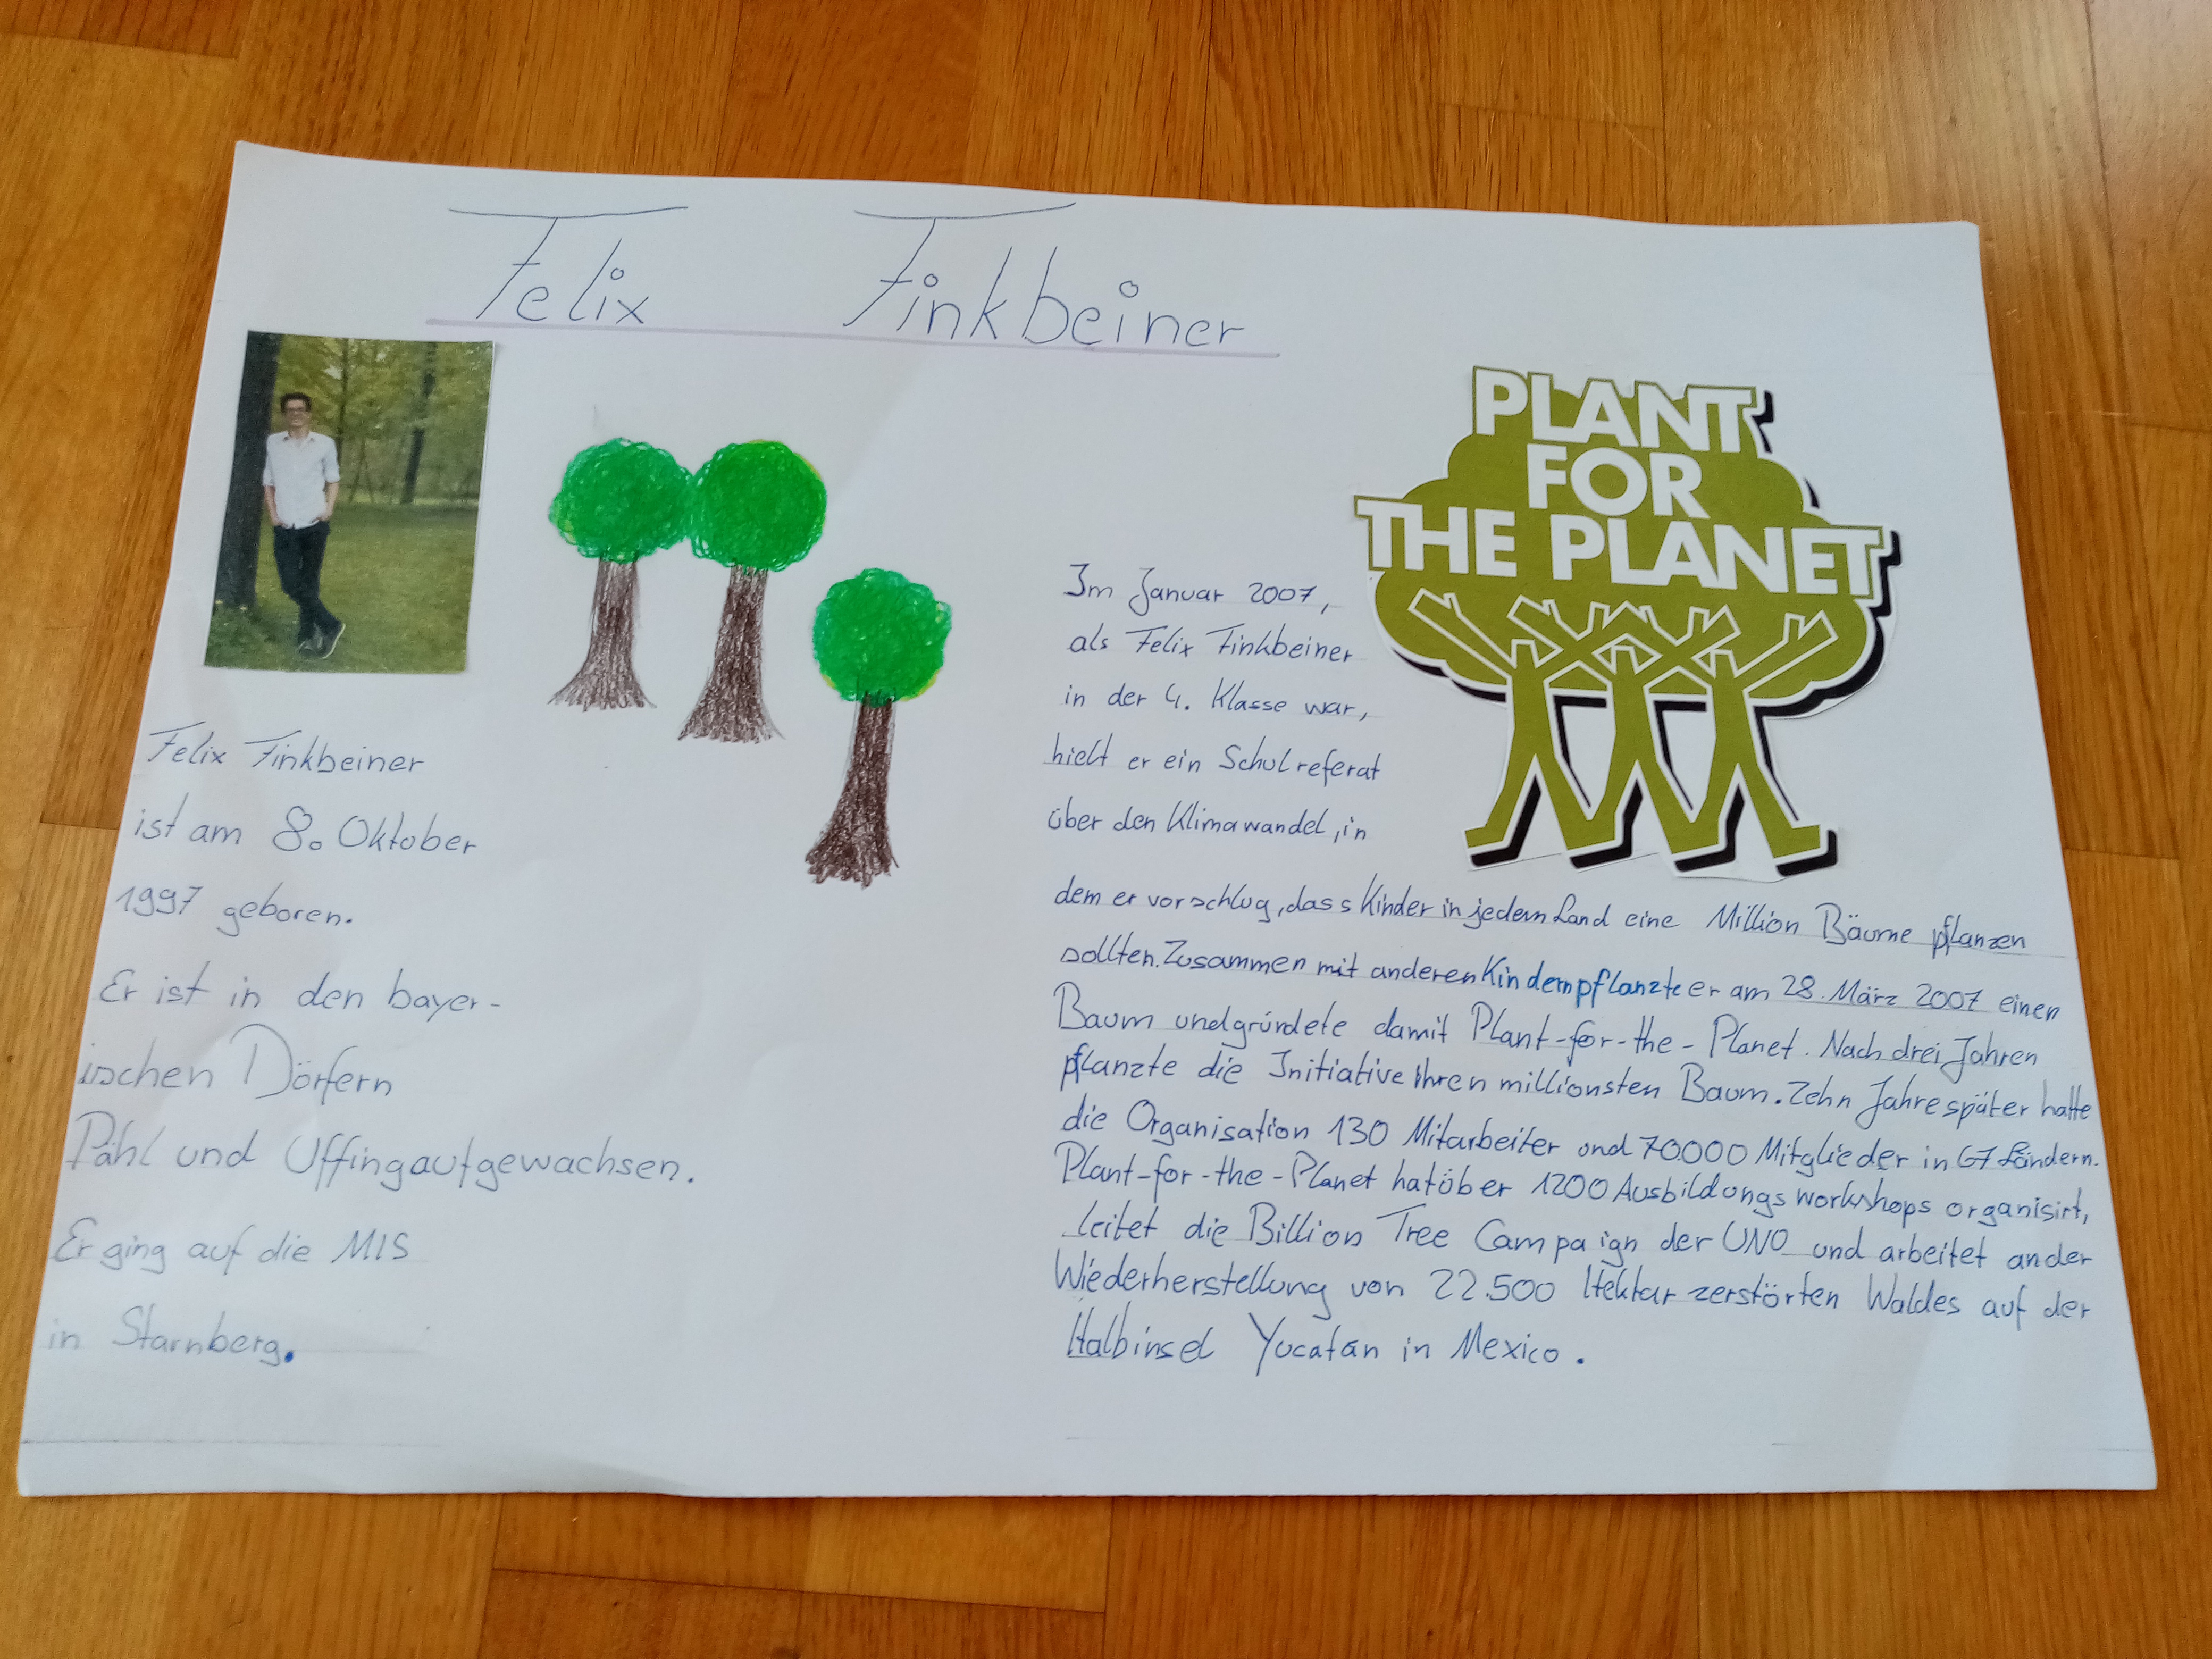 Felix Finkbeiner
Felix Finkbeiner
ist am 8. Oktober
1997 geboren.
Er ist in den bayer-
ischen Dörfern
Pähl und Uffing aufgewachsen.
Er ging auf die MIS
in Starnberg.
PLANT
FOR
THE PLANET
Im Januar 2007,
als Felix Finkbeiner
in der 4. Klasse war,
hielt er ein Schulreferat
über den Klimawandel, in
dem er vorschlug, dass Kinder in jedem Land eine Million Bäume pflanzen
sollten. Zusammen mit anderen Kindern pflanzte er am 28. März 2007 einen
Baum und gründete damit Plant-for-the-Planet. Nach drei Jahren
pflanzte die Initiative Ihren millionsten Baum. Zehn Jahre später hatte
die Organisation 130 Mitarbeiter und 70000 Mitglieder in 67 Ländern.
Plant-for-the-Planet hat über 1200 Ausbildungsworkshops organisirt,
leitet die Billion Tree Campaign der UNO und arbeitet an der
Wiederherstellung von 22.500 Hektar zerstörten Waldes auf der
Halbinsel Yucatán in Mexico.